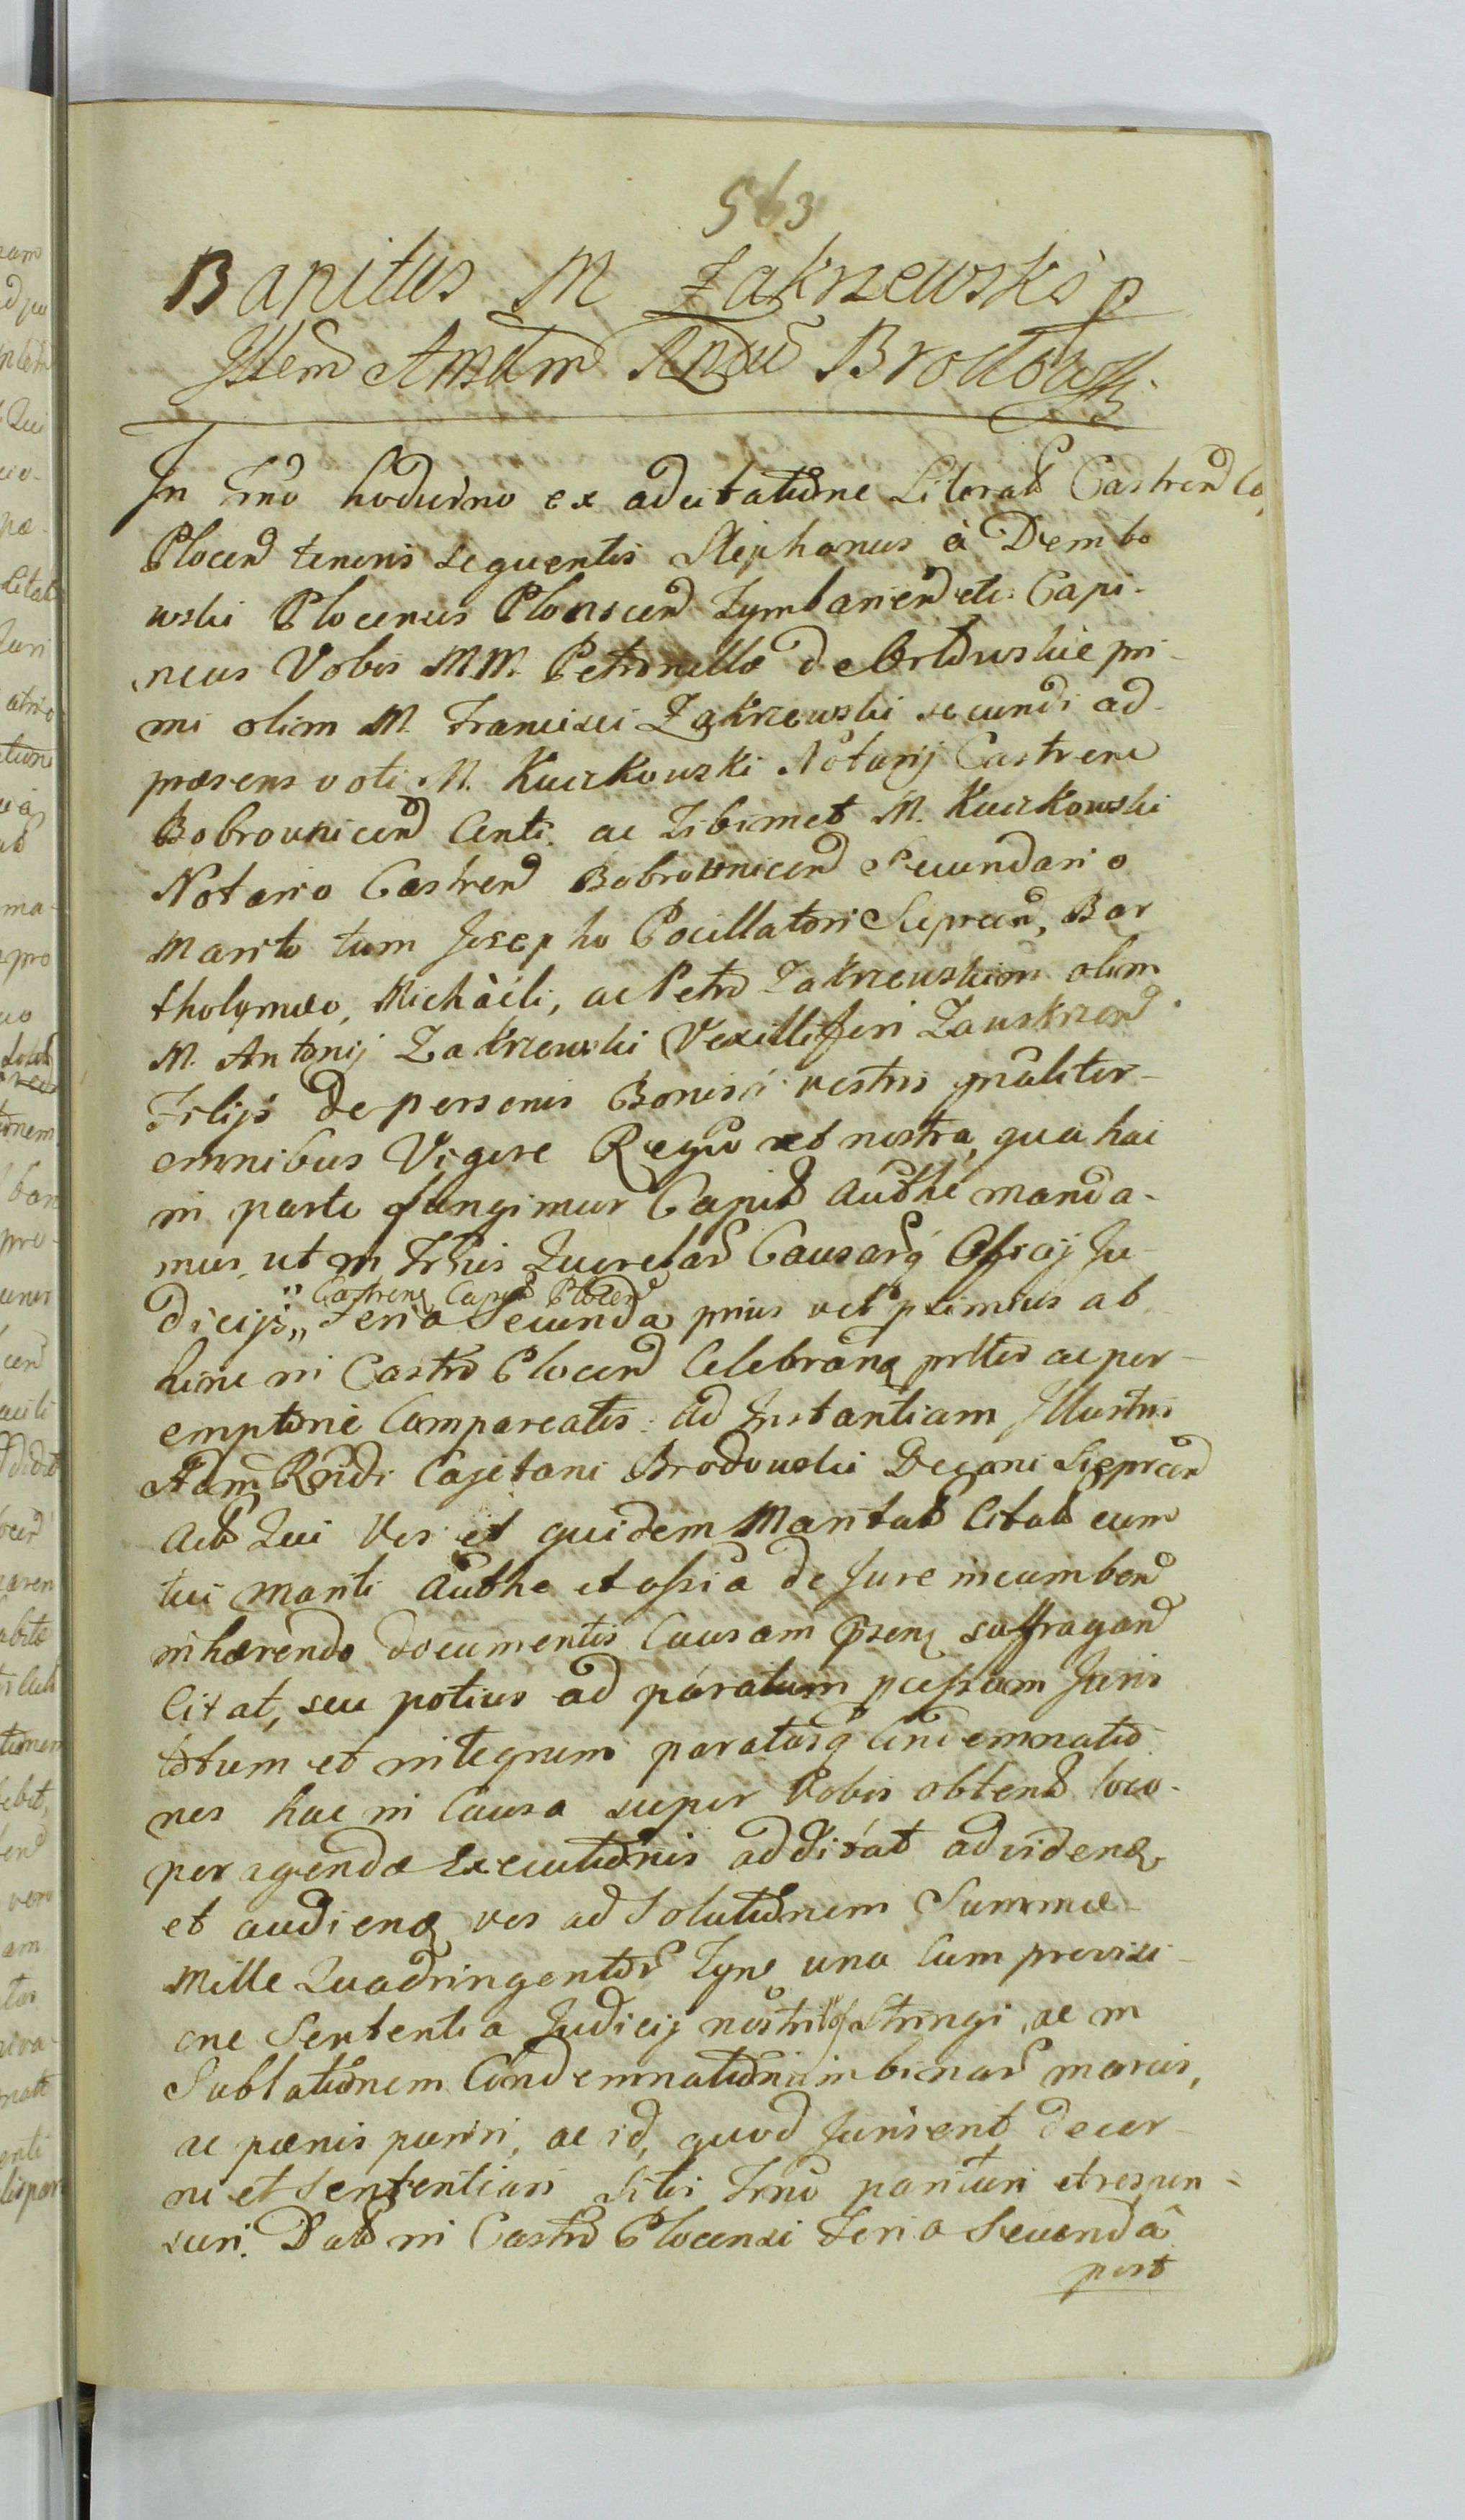 563
Banitus M Zakrzewski p
Jllem Amdm Rndu Brodow
In Trno hodierno ex adcitatione Literas Castren Ca
Plocen tenoris sequentis Stephanus à Dembo
wski Plocensis Plonscen Zymbarien etc: Capi-
neus Vobis M.M. Petronilla de pri-
mi olim M. Francisci Zakrzewski secundi ad
præsens voti M. Kuczkowski Notarij Castrens
Bobrownicen Centi. ac Tibimet M. Kuczkowski
Notario Castren Bobrownicen Secundario
Marito tum Josepho Pocillatori Sieprcen, Bar
tholomæo, Michäeli, ac Petro Zakrzewskim olim
M. Antonij Zakrzewski Vexilliferi Zauskrzen
Filijs de personis Bonisq vestris gnaliter
omnibus Vigore Regio et nostra, qua hac
in parte fungimur Capit Autthe manda-
mus, ut in Trhis Querelar Causarq Officij Ju-
Castrens Capit Plocen
dicijs „ Feria Secunda prius vel proximius ab
hinc in Castro Plocen Celebran prltes ac per-
emptorie Compareatis: Ad Instantiam Illustris
Adm Rndi Cajetani Brodowski Decani Sieprcen
Act Qui Vos et quidem Maritat Citat cum
tui mariti Autthe et assia de Jure incumben
inhærendo documentis Causam præsen suffragan
Citat, seu potius ad paratum pcessum Juris
totum et integrum paratasq Condemnatio
nes hac in Causa super Vobis obtent loco
peragendæ Executionis adcitat ad viden
et audien vos ad Solutionem Summæ
Mille Quadringentor Tyn una cum provisi-
one Sententia Judicij nostri Stringi, ac in
Sublationem Condemnationum binar marcis,
ac pœnis puniri, ac id, quod Juris erit, decer-
ni et Sententiari Sitis Trno parituri et respon-
suri. Dat in Castro Plocensi Feria Secunda
post